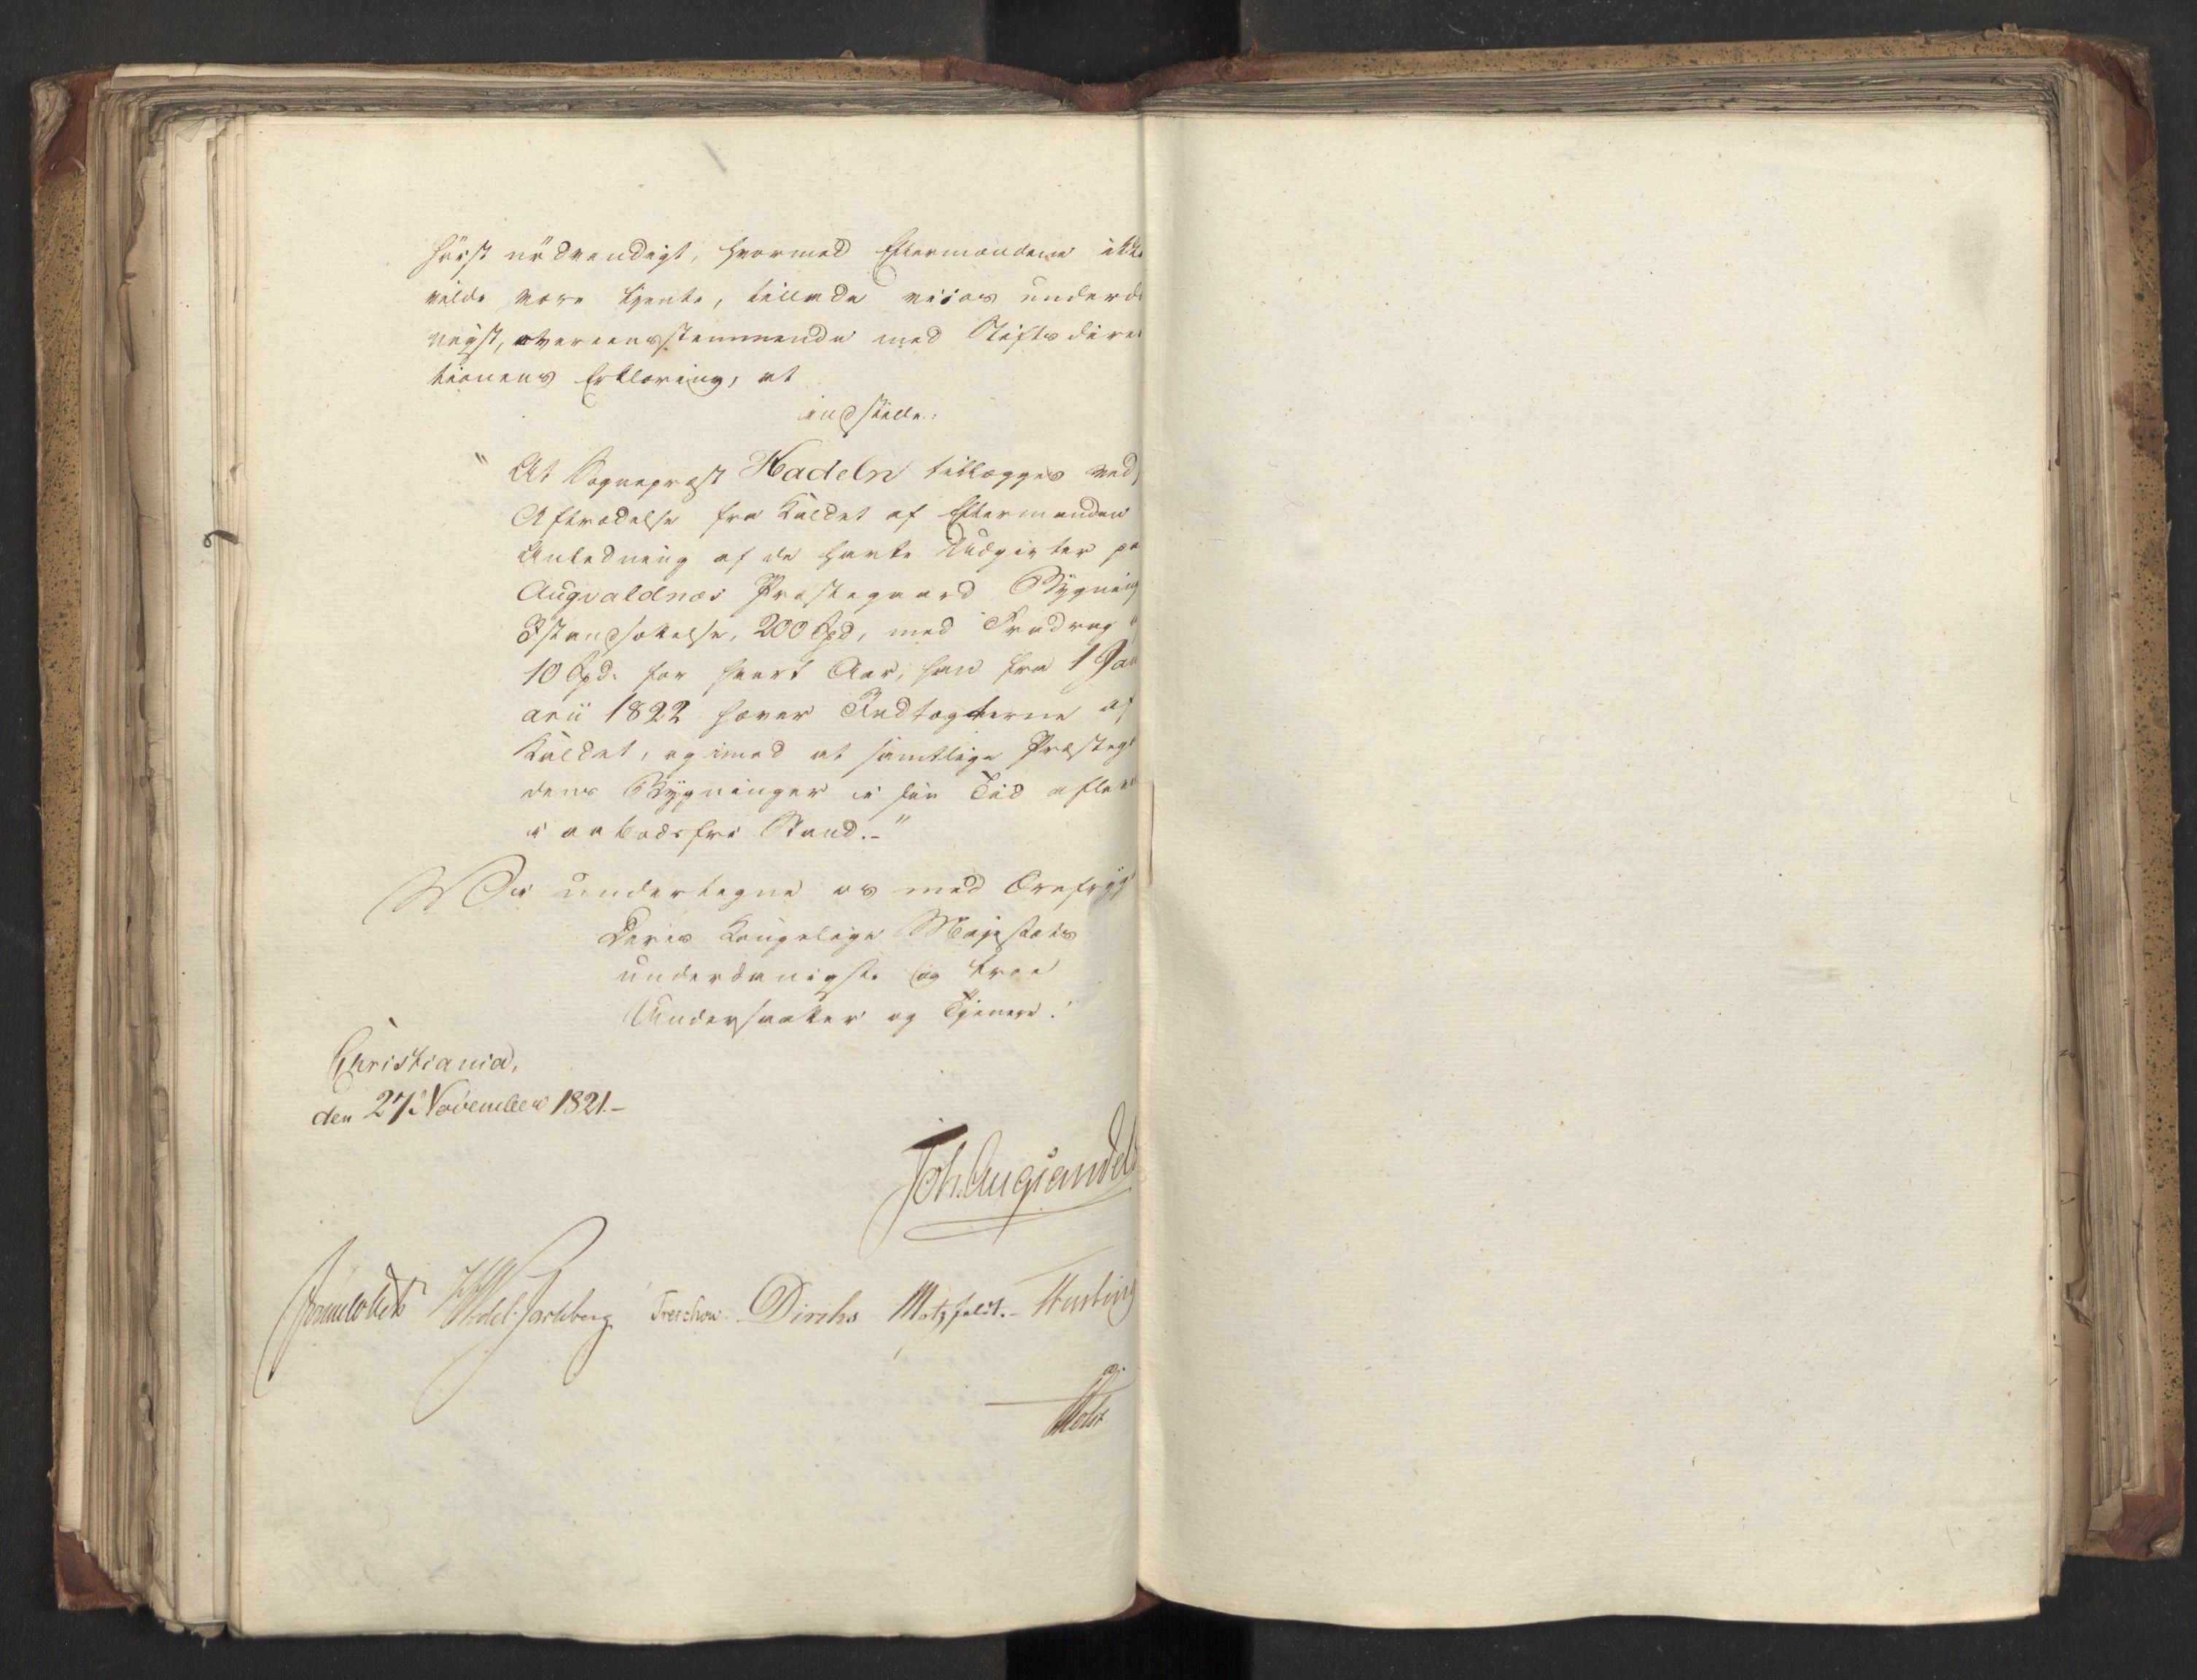 høist nødvendigt, hvormed Eftermanden ikke
vilde være tjent, tillade vi os underda
nigst, overeensstemmende med Stiftsdirec
tionens Erklæring, at
indstille:
"At Sognepræst Hadeln tillægges ved
Aftrædelse fra Kaldet af Eftermanden
Anledning af de havte Udgivter paa
Augvaldnæs Præstegaard Bygning
Istandsættelse, 200 Spd, med Fradrag af
10 Spd. for hvert Aar, han fra 1 Janu
arii 1822 hæver Indtægterne af
Kaldet, og imod at samtlige Præstegaar
dens Bygninger i sin Tid aflev
i aabodsfri Stand.-"
Vi undertegne os med Ærefrygt
Deres Kongelige Majestæts
underdanigste og troe
Undersaatter og Tjenere!
Christiania,
den 27 November 1821.-
Joh. Aug Sandels
Sommerhielm HWedel Jarlsberg Treschow. Diriks Motzfeldt.- Fasting
Holst